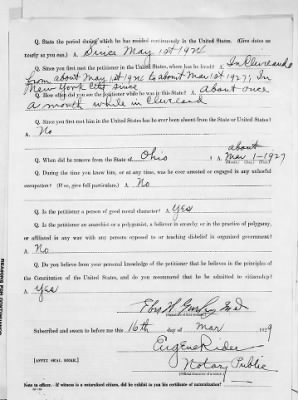 Q. State the period during which he has resided continuously in the United States. (Give dates as
nearly as you can.) A. Since May 1st 1924
Q. Since you first met the petitioner in the United States, where has he lived? A. In Cleveland
from about May 1st 1924 to about Mar 1st 1927; In
New York City since
Q. How often did you see the petitioner while he was in this State? A. About once
a month while in Cleveland
Q. Since you first met him in the United States has he ever been absent from the State or United States?
A. No
Q. When did he remove from the State of Ohio ? A. about Mar 1-1927
Q. During the time you knew him, or at any time, was he ever arrested or engaged in any unlawful
occupation? (If so, give full particulars.) A. No
Q. Is the petitioner a person of good moral character? A. Yes
Q. Is the petitioner an anarchist or a polygamist, a believer in anarchy or in the practice of polygamy,
or affiliated in any way with any persons opposed to or teaching disbelief in organized government?
A. No
Q. Do you believe from your personal knowledge of the petitioner that he believes in the principles
of the Constitution of the United States, and do you recommend that he be admitted to citizenship?
A. Yes
Subscribed and sworn to before me this 16th day of Mar 1929
Eugene Rider
Notary Public
[AFFIX SEAL HERE.]
Note to officer.—If witness is a naturalized citizen, did he exhibit to you his certificate of naturalization?